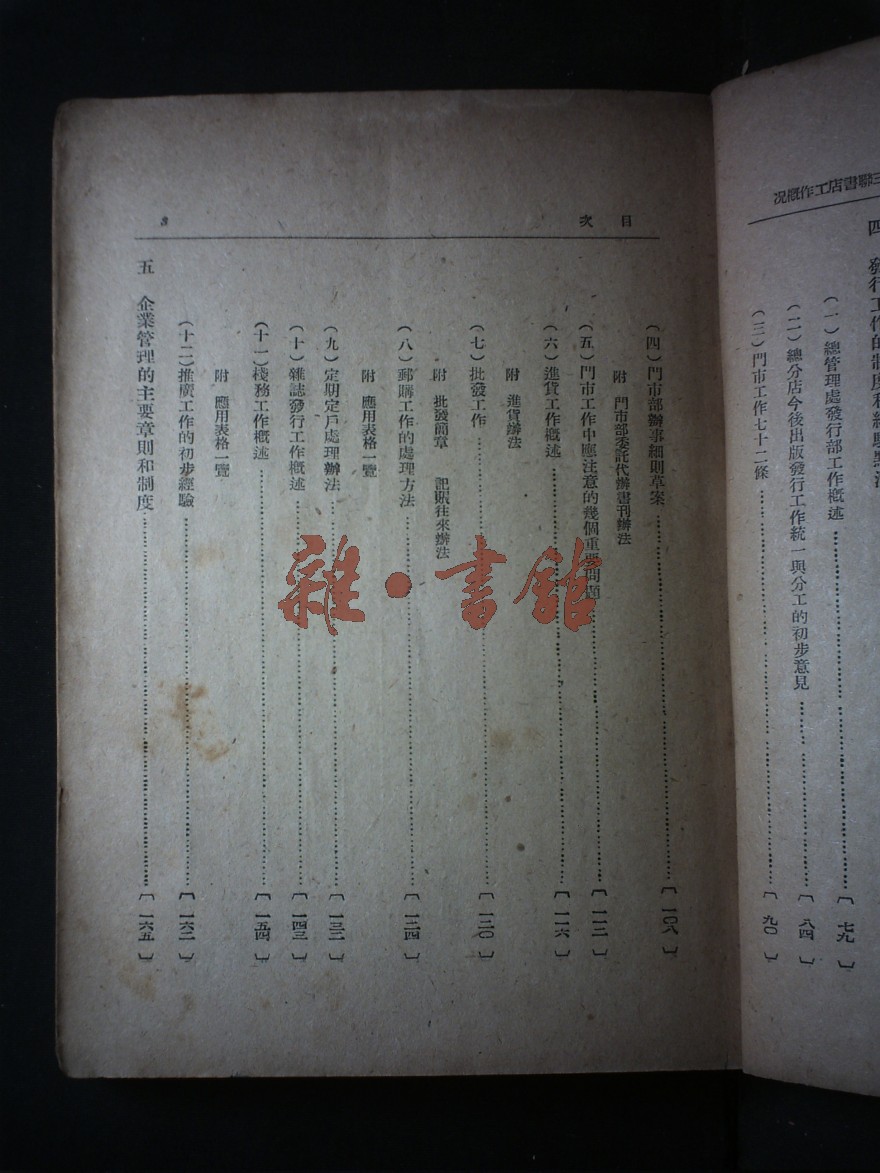 三聯書店工作概况
四　發行工作的制度和經驗點滴
（一）總管理處發行部工作概述……〔七九〕
（二）總分店今後出版發行工作統一與分工的初步意見……〔八四〕
（三）門市工作七十二條……〔九〇〕
目次　3
（四）門市部辦事細則草案……〔一〇八〕
附　門市部委託代辦書刊辦法
（五）門市工作中應注意的幾個重要問題……〔一一二〕
（六）進貨工作概述……〔一一六〕
附　進貨辦法
（七）批發工作……〔一二〇〕
附　批發簡章　記賬往來辦法
（八）郵購工作的處理方法……〔一二四〕
附　應用表格一覽
（九）定期定戶處理辦法……〔一三二〕
（十）雜誌發行工作概述……〔一四三〕
（十一）棧務工作概述……〔一五四〕
附　應用表格一覽
（十二）推廣工作的初步經驗……〔一六二〕
五　企業管理的主要章則和制度……〔一六五〕
雜·書館